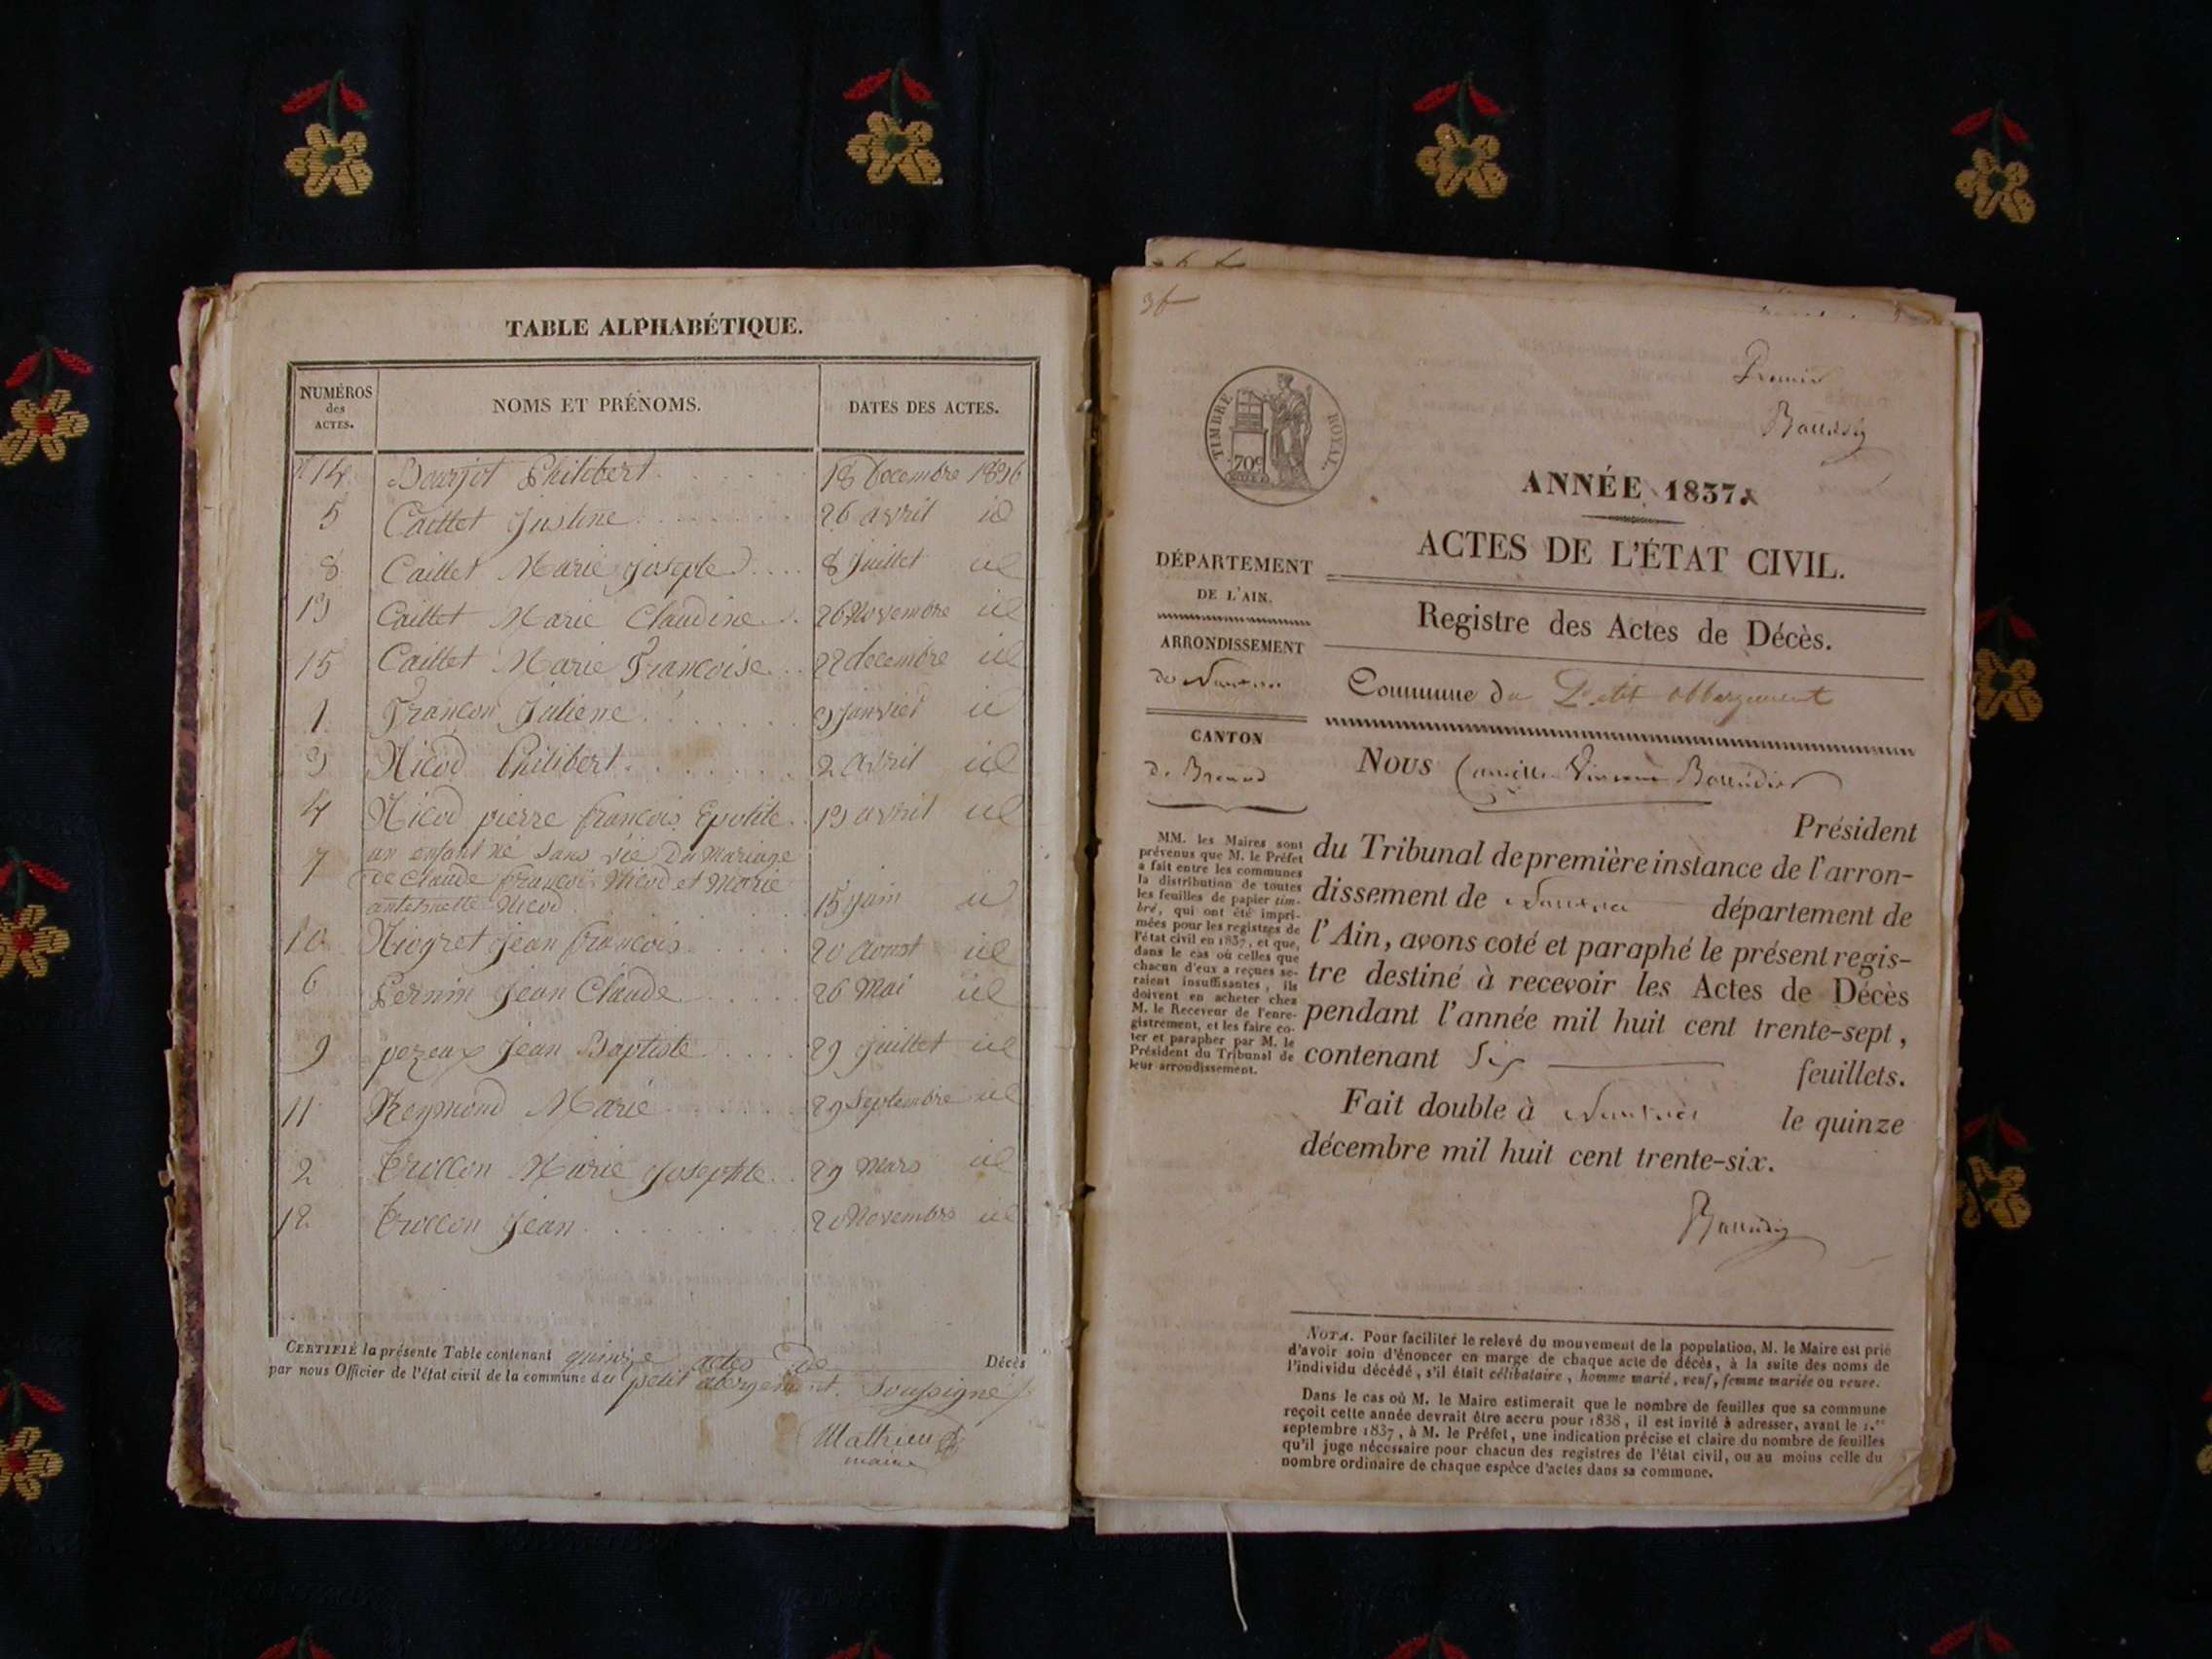 TABLE ALPHABÉTIQUE.
NUMÉROS des ACTES. NOMS ET PRÉNOMS. DATES DES ACTES.
14 Bourjot Philibert 18 Decembre 1836
5 Caillet Justine 26 avril id
8 Caillet Marie josephe 8 Juillet id
13 Caillet Marie Claudine 26 Novembre id
15 Caillet Marie Françoise 22 decembre id
1 Françon Juliene 9 janvier id
3 Nicod Philibert 2 avril id
4 Nicod pierre françois Epolite 13 avril id
7 un enfant né sans vie du Mariage
de Claude françois Nicod et Marie
antoinette Nicod 15 juin id
10 Niogret Jean françois 20 Aoust id
6 Pernin Jean Claude 26 Mai id
9 pezeux Jean Baptiste 29 juillet id
11 Reymond Marie 29 Septembre id
2 Trollon Marie josephte 29 Mars id
12 Trollon Jean 20 Novembre id
CERTIFIÉ la présente Table contenant quinze actes de Décès
par nous Officier de l'état civil de la commune du petit abergement. Soussigné
Mathieu
maire
TIMBRE ROYAL.
70c
ANNÉE 1837.
ACTES DE L'ÉTAT CIVIL.
Registre des Actes de Décès.
Commune du Petit Abbergement
DÉPARTEMENT
DE L'AIN.
ARRONDISSEMENT
de Nantua
CANTON
de Brenod
MM. les Maires sont
prévenus que M. le Préfet
a fait entre les communes
la distribution de toutes
les feuilles de papier tim-
bré, qui ont été impri-
mées pour les registres de
l'état civil en 1837, et que,
dans le cas où celles que
chacun d'eux a reçues se-
raient insuffisantes, ils
doivent en acheter chez
M. le Receveur de l'enre-
gistrement, et les faire co-
ter et parapher par M. le
Président du Tribunal de
leur arrondissement.
Nous Camille Vincent Baudin
Président
du Tribunal de première instance de l'arron-
dissement de Nantua département de
l'Ain, avons coté et paraphé le présent regis-
tre destiné à recevoir les Actes de Décès
pendant l'année mil huit cent trente-sept,
contenant Six feuillets.
Fait double à Nantua le quinze
décembre mil huit cent trente-six.
NOTA. Pour faciliter le relevé du mouvement de la population, M. le Maire est prié
d'avoir soin d'énoncer en marge de chaque acte de décès, à la suite des noms de
l'individu décédé, s'il était célibataire, homme marié, veuf, femme mariée ou veuve.
Dans le cas où M. le Maire estimerait que le nombre de feuilles que sa commune
reçoit cette année devrait être accru pour 1838, il est invité à adresser, avant le 1.er
septembre 1837, à M. le Préfet, une indication précise et claire du nombre de feuilles
qu'il juge nécessaire pour chacun des registres de l'état civil, ou au moins celle du
nombre ordinaire de chaque espèce d'actes dans sa commune.